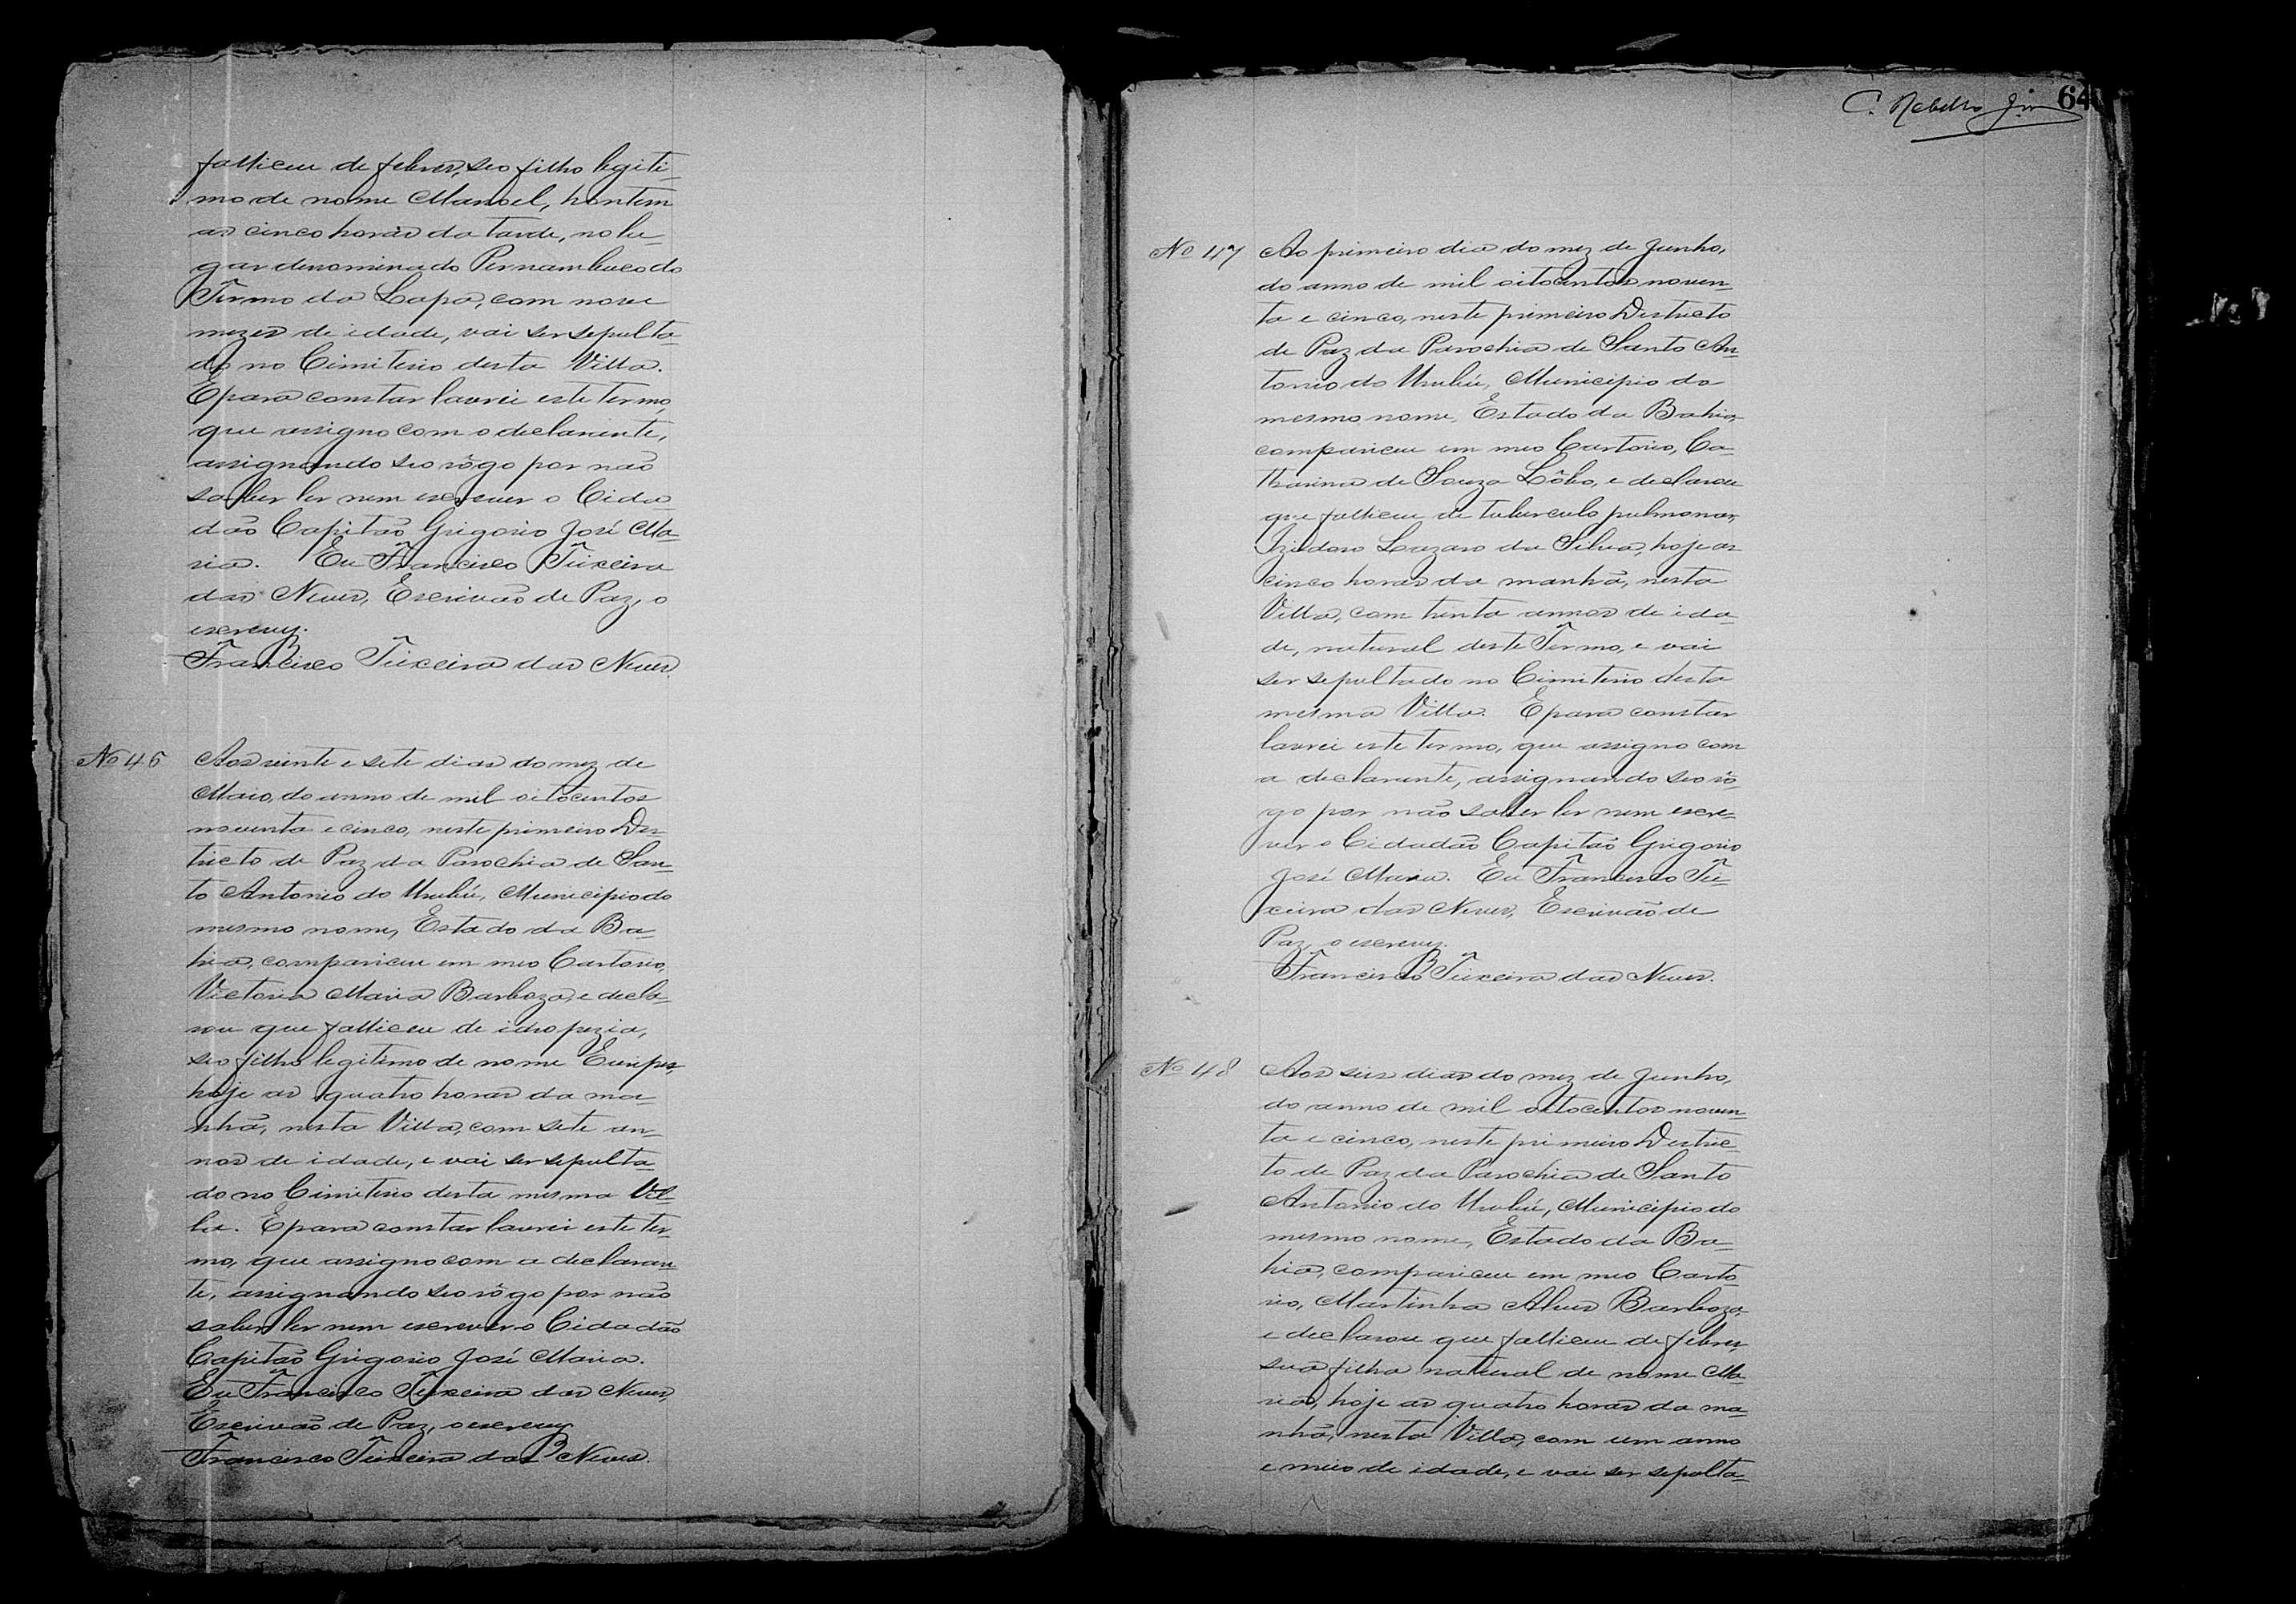 falliceu de febres, seo filho legiti-
mo de nome Manoel, hontem
as cinco horas da tarde, no lu-
gar denominado Pernambuco do
Termo da Lapa, com nove
mezes de idade, vai ser sepulta-
do no Cimiterio desta Villa.
E para constar lavrei este termo,
que assigno com o declarante,
assignando seo rôgo por não
saber ler nem escrever o Cida-
dão Capitão Grigorio José Ma-
ria. Eu Francisco Teixeira
das Neves, Escrivão de Paz, o
escrevy.
Francisco Teixeira das Neves.
No 46 Aos vinte e sete dias do mez de
Maio, do anno de mil oitocentos
noventa e cinco, neste primeiro Des-
tricto de Paz da Parochia de San-
to Antonio do Urubú, Municipio do
mesmo nome, Estado da Ba-
hia, compariceu em meo Cartorio,
Victoria Maria Barboza, e decla-
rou que falliceu de idropezia,
seo filho legitimo de nome
hoje as quatro horas da ma-
nhã, nesta Villa, com sete an-
nos de idade, e vai ser sepulta-
do no Cimiterio desta mesma Vil-
la. E para constar lavrei este ter-
mo, que assigno com a declaran-
te, assignando seo rôgo por não
saber ler nem escrever o Cidadão
Capitão Grigorio José Maria.
Eu Francisco Teixeira das Neves,
Escrivão de Paz, o escrevy
Francisco Teixeira das Neves.
64
No 47 Ao primeiro dia do mez de Junho,
do anno de mil oitocentos noven-
ta e cinco, neste primeiro Destricto
de Paz da Parochia de Santo An-
tonio do Urubú, Municipio do
mesmo nome, Estado da Bahia,
compariceu em meo Cartorio, Ca-
tharina de Souza Lôbo, e declarou
que falliceu de tuberculo pulmonar,
Izidoro Lazaro da Silva, hoje as
cinco horas da manhã, nesta
Villa, com trinta annos de ida-
de, natural deste Termo, e vai
ser sepultado no Cimiterio desta
mesma Villa. E para constar
lavrei este termo, que assigno com
a declarante, assignando seo rô-
go por não saber ler nem escre-
ver o Cidadão Capitão Grigorio
José Maria. Eu Francisco Tei-
xeira das Neves, Escrivão de
Paz, o escrevy.
Francisco Teixeira das Neves.
No 48 Aos seis dias do mez de Junho,
do anno de mil oitocentos noven-
ta e cinco, neste primeiro Destric-
to de Paz da Parochia de Santo
Antonio do Urubú, Municipio do
mesmo nome, Estado da Ba-
hia, compariceu em meo Carto-
rio, Martinha Alves Barboza,
e declarou que falliceu de febres,
sua filha natural de nome Ma-
ria, hoje as quatro horas da ma-
nhã, nesta Villa, com um anno
e meio de idade, e vai ser sepulta-